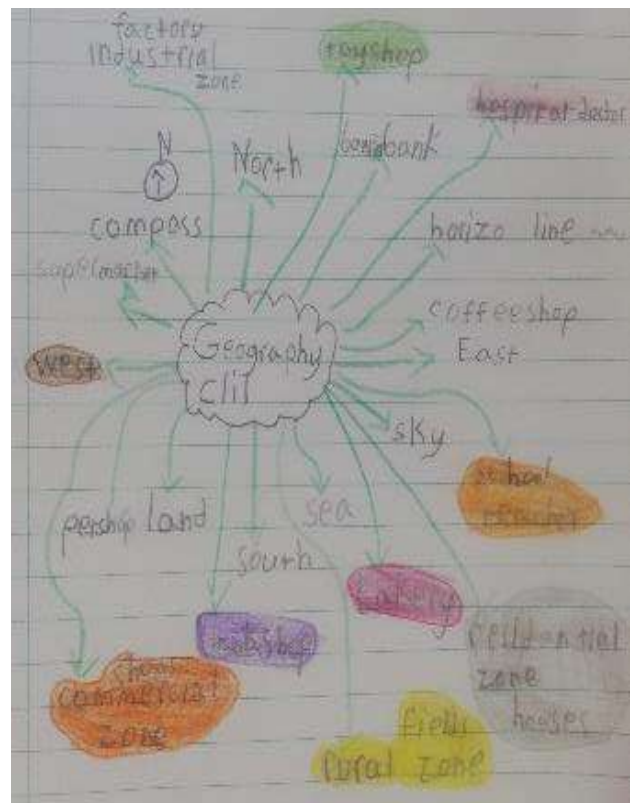 factory
industrial
zone
toyshop
hospital doctor
N
North
bank
compass
horizo line
supermarket
coffeeshop
East
Geography
clil
West
sky
school
teacher
petshop
land
sea
south
bakery
residential
zone
houses
commercial
zone
fields
rural zone